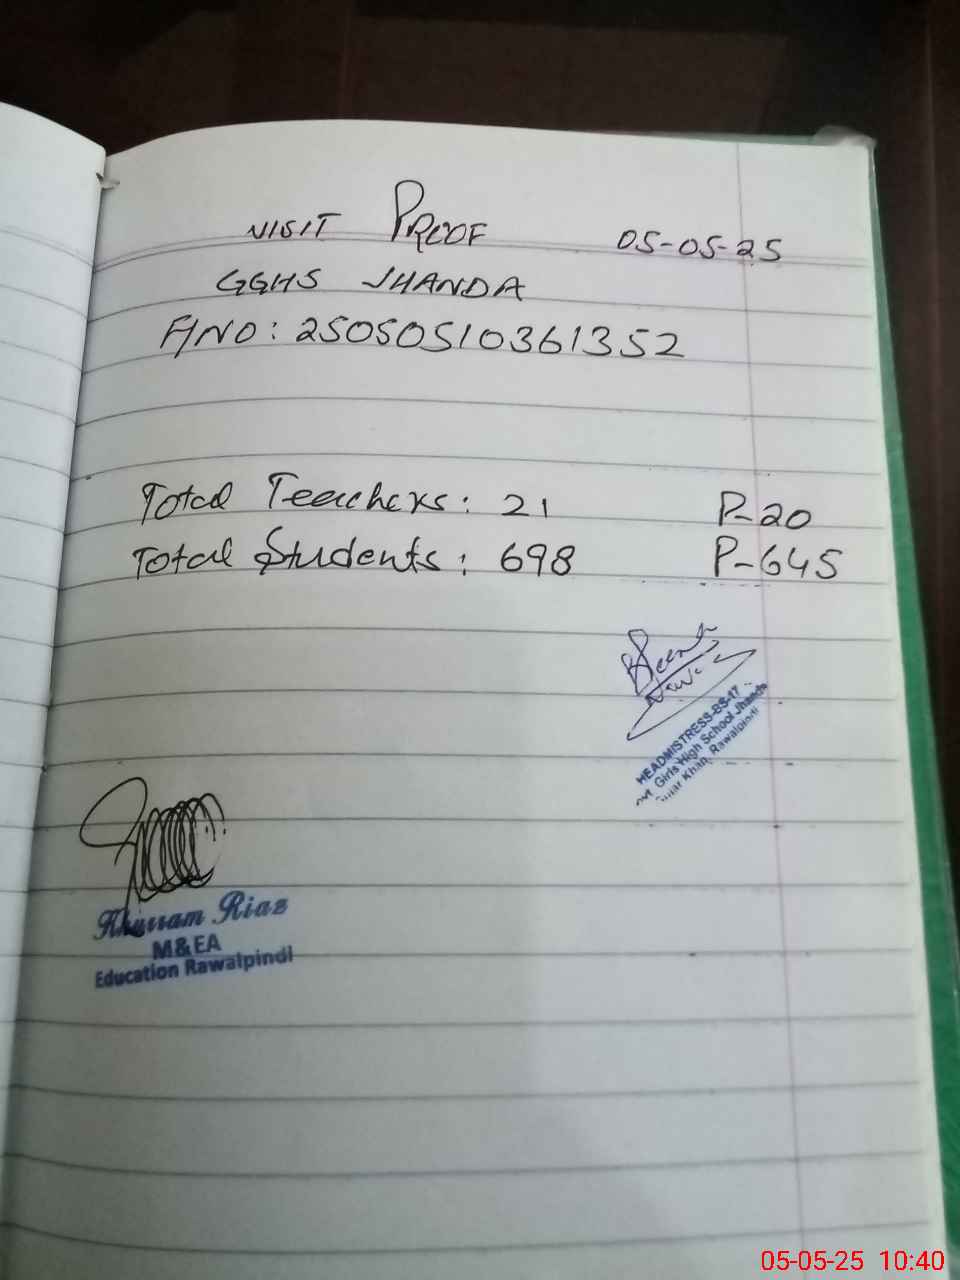 VISIT PROOF 05-05-25
GGHS JHANDA
A/NO: 25050510361352
Total Teachers: 21 P-20
Total Students: 698 P-645
HEADMISTRESS-BS-17
Girls High School Jhanda
Khan, Rawalpindi
Khurram Riaz
M&EA
Education Rawalpindi
05-05-25 10:40